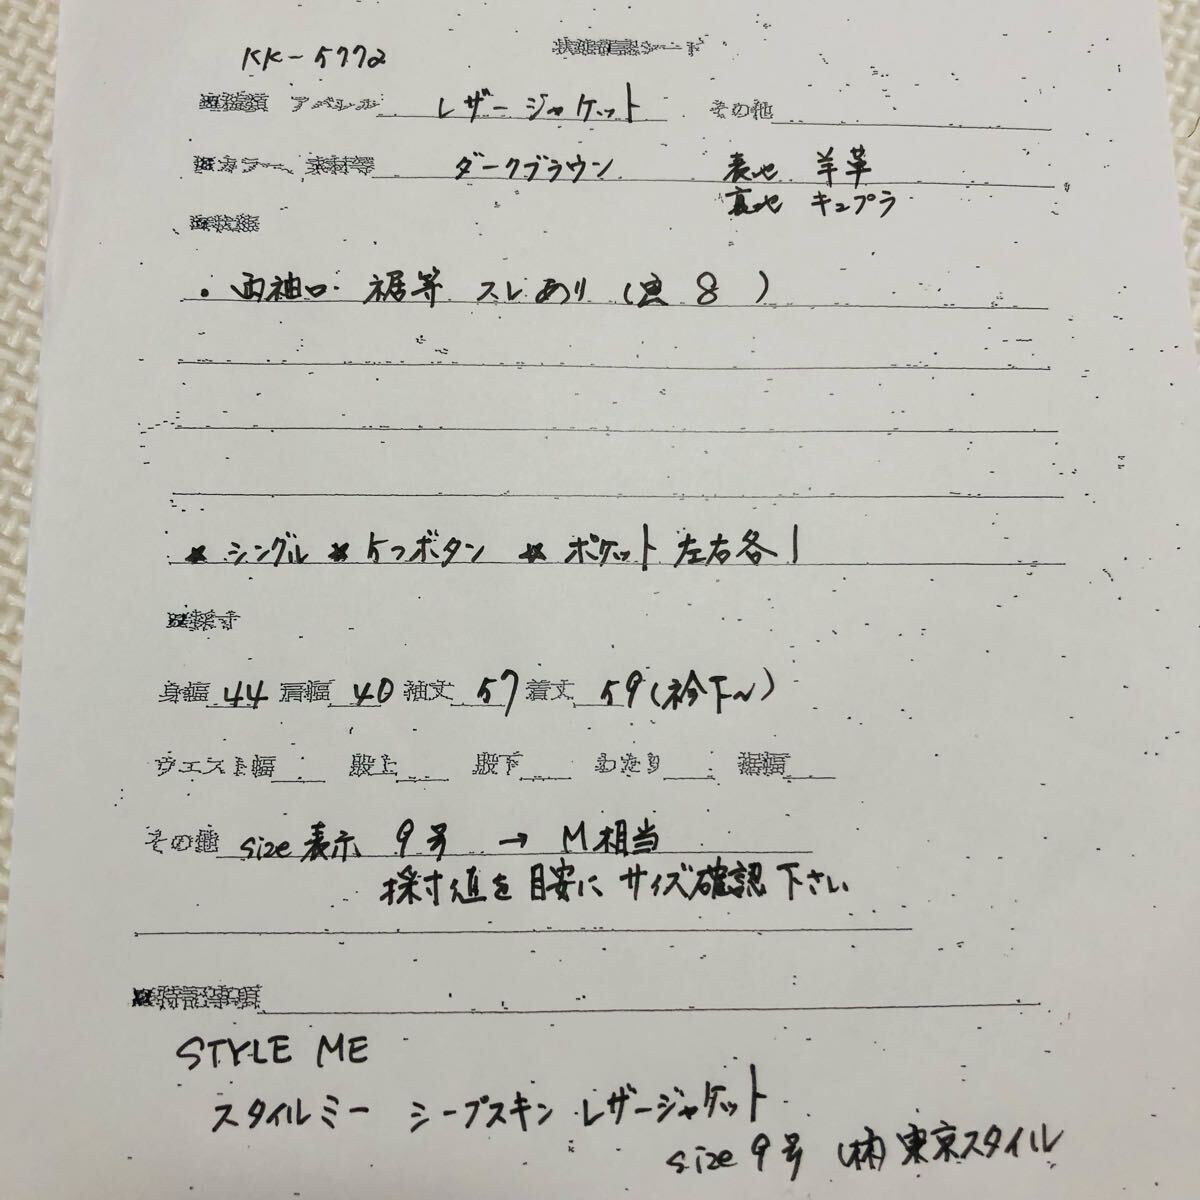 状態確認シート
KK-5772
■種類 アパレル レザージャケット その他
■カラー、素材等 ダークブラウン 表地 羊革
裏地 キュプラ
■状態
・両袖口・裾等 スレあり（黒 8 ）
★シングル ★5つボタン ★ポケット左右各1
■採寸
身幅 44 肩幅 40 袖丈 57 着丈 59(衿下〜)
ウエスト幅 股上 股下 わたり 裾幅
その他 size表示 9号 → M相当
採寸値を目安にサイズ確認下さい
■特記事項
STYLE ME
スタイルミー シープスキン レザージャケット
size 9号 (株)東京スタイル